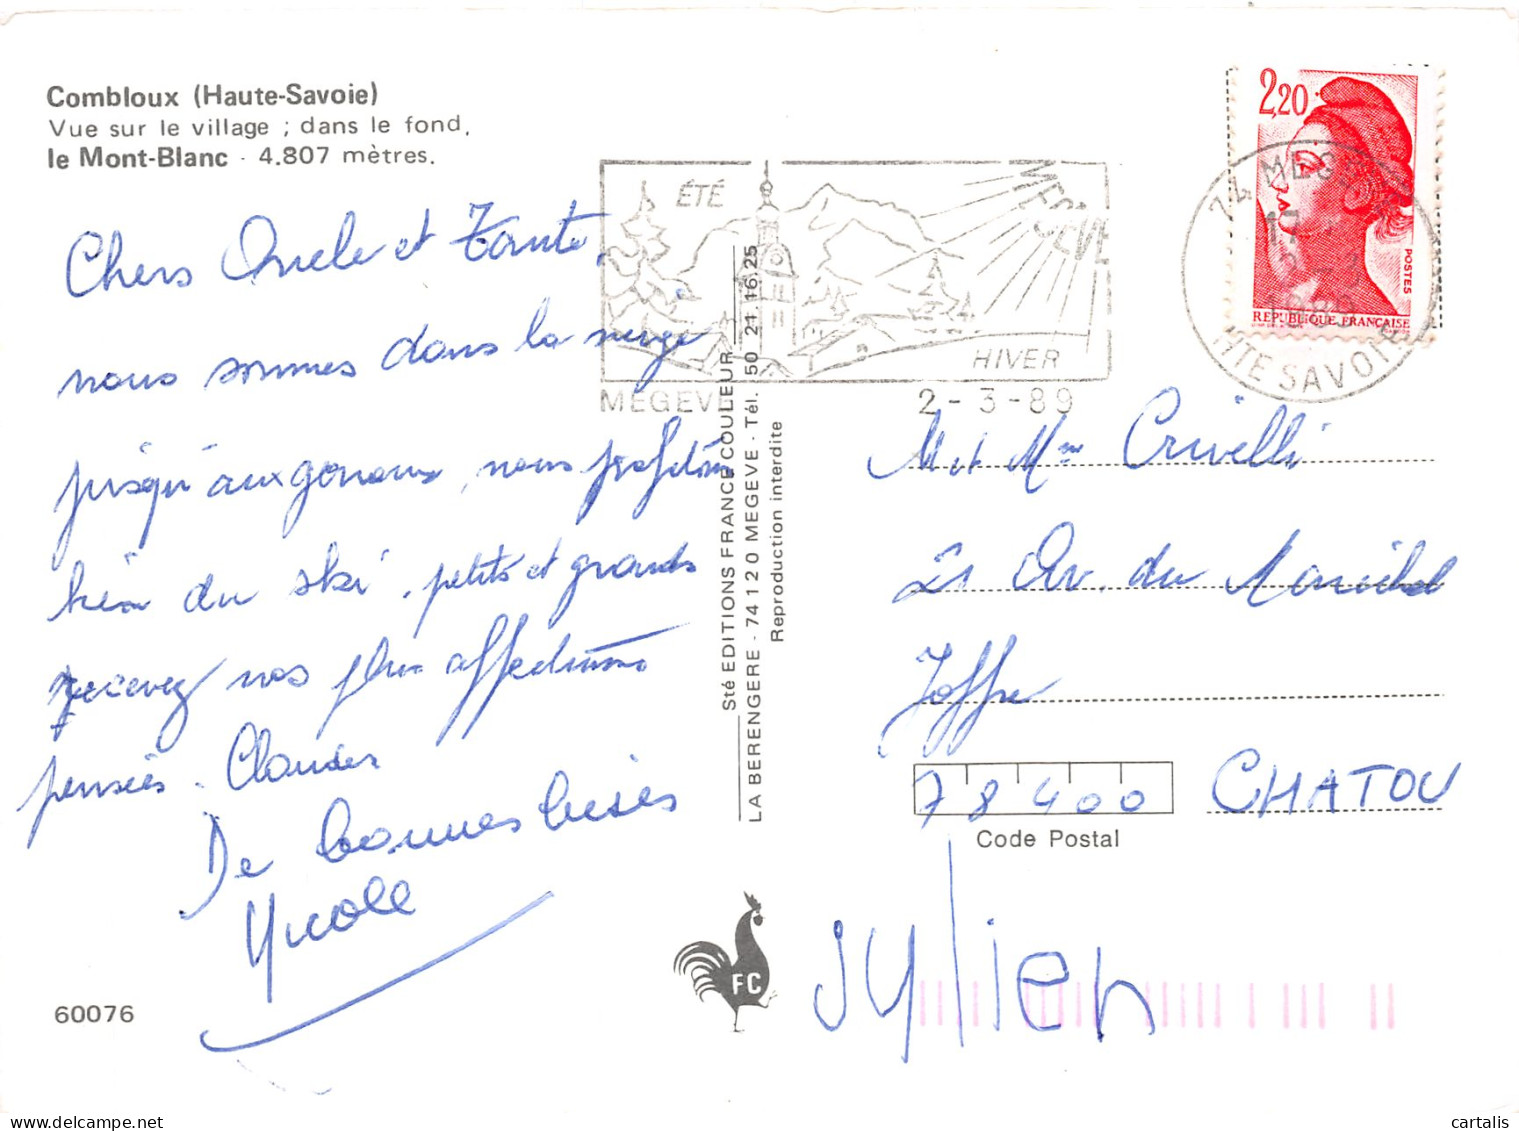 Combloux (Haute-Savoie)
Vue sur le village ; dans le fond,
le Mont-Blanc - 4.807 mètres.
Chers Oncle et Tante,
nous sommes dans la neige
jusqu'aux genoux, nous profitons
bien du ski, petits et grands
recevez nos plus affectueuses
pensées. Claudes
De bonnes bises
Nicole
60076
Sté EDITIONS FRANCE COULEUR
LA BERENGERE - 74120 MEGEVE - Tél. 50 21.16.25
Reproduction interdite
FC
ÉTÉ
MEGEVE
HIVER
MEGEVE
2-3-89
74 MEGEVE
17
2-3
1989
HTE SAVOIE
2,20
POSTES
REPUBLIQUE FRANCAISE
M et Mme Crivelli
21 Av. du Maréchal
Joffre
78400 CHATOU
Code Postal
Jylien
cartalis